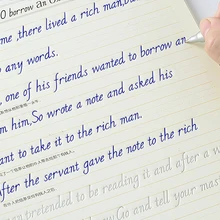 O borrow an O
me ,there lived a rich man,bu
any words.
one of his friends wanted to borrow an
m him,So wrote a note and asked his
ant to take it to the rich man.
fter the servant gave the note to the rich
an pretended to be reading it and after a w
Go and tell your mast